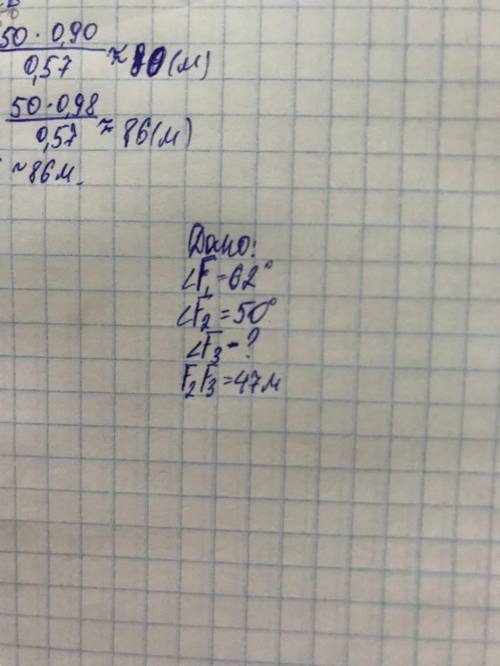 50 · 0,90
0,57 ≈ 80 (м)
50 · 0,98
0,57 ≈ 86 (м)
≈ 86 м.
Дано:
∠F₁ = 62°
∠F₂ = 50°
∠F₃ - ?
F₂F₃ = 47 м